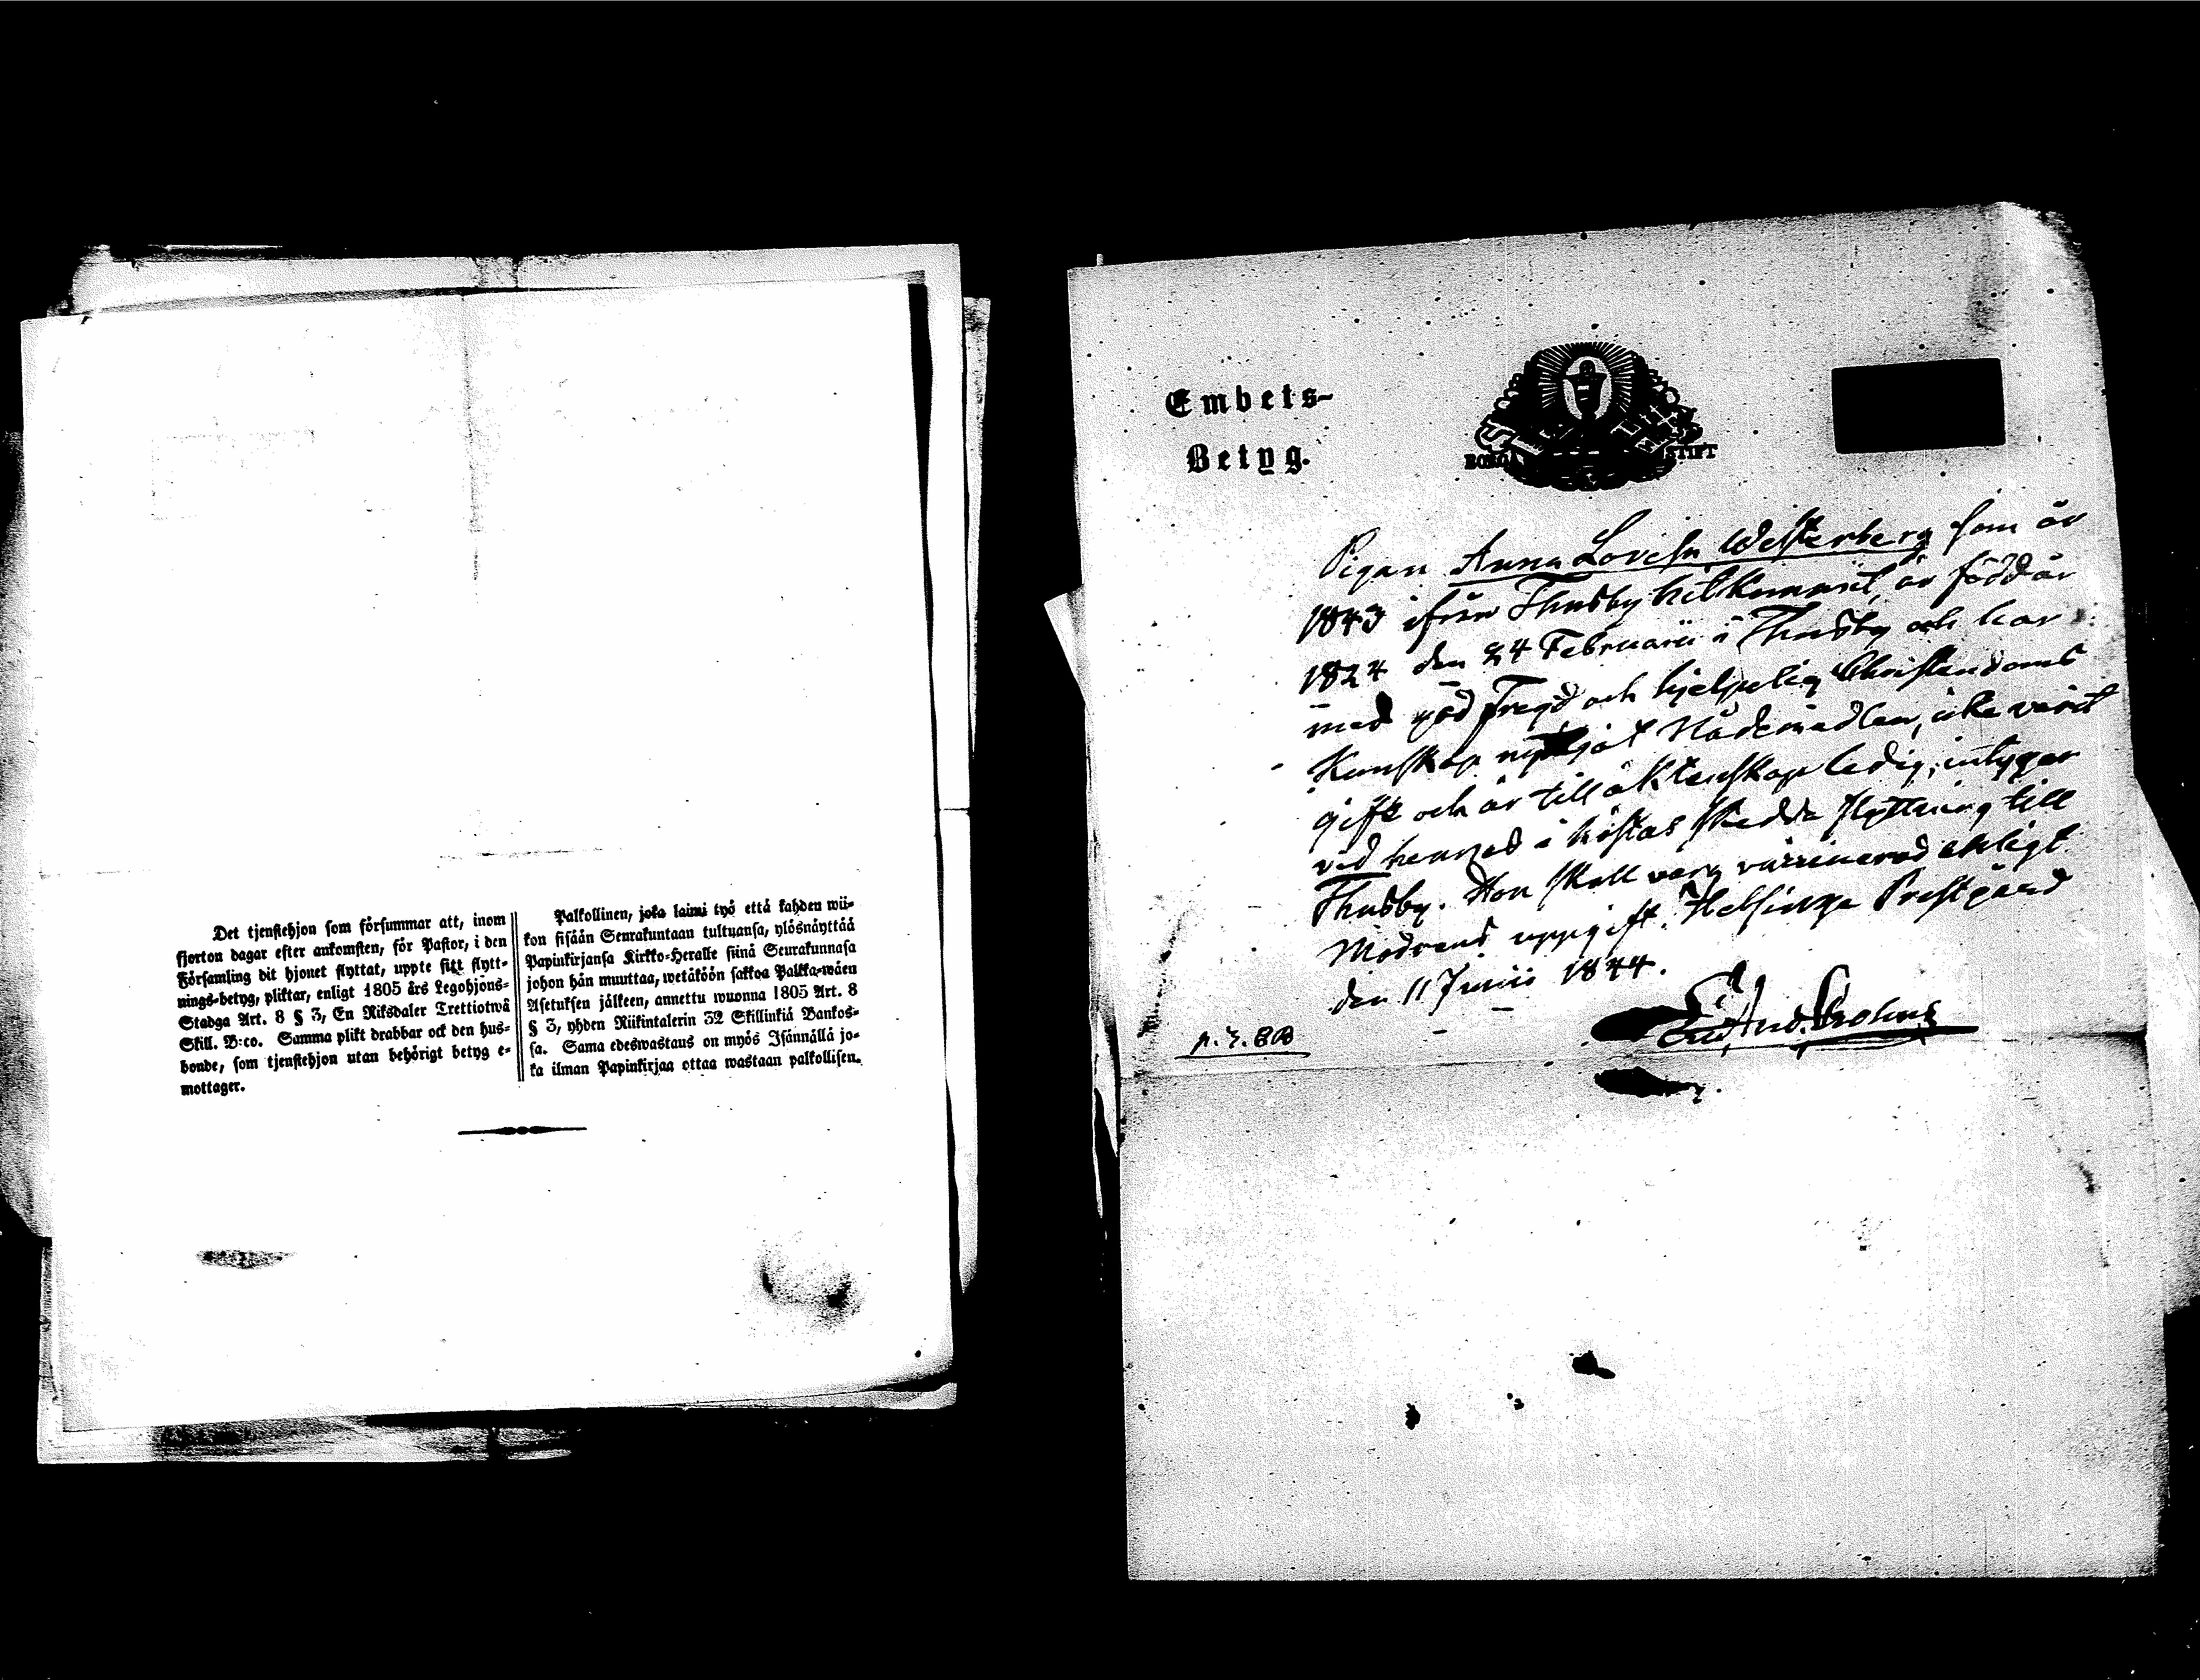 Det tjenstehjon som försummar att, inom
fjorton dagar efter ankomsten, för Pastor, i den
Församling dit hjonet flyttat, uppte sitt flytt-
nings-betyg, pliktar, enligt 1805 års Legohjons-
Stadga Art. 8 § 3, En Riksdaler Trettiotwå
Skill. B:co. Samma plikt drabbar ock den hus-
bonde, som tjenstehjon utan behörigt betyg e-
mottager.
Palkollinen, joka laimi työ että kahden wii-
kon sisään Seurakuntaan tultuansa, ylösnäyttää
Papinkirjansa Kirkko-Heralle siinä Seurakunnasa
johon hän muuttaa, wetäköön sakkoa Palkka-wäen
Asetuksen jälkeen, annettu wuonna 1805 Art. 8
§ 3, yhden Riikintalerin 32 Skillinkiä Bankos-
sa. Sama edeswastaus on myös Isännällä jo-
ka ilman Papinkirjaa ottaa wastaan palkollisen.
Embets-
Betyg.
STIFT
Pigan Anna Lovisa Westerberg som år
1843 ifrån Thusby hitkommit, är född år
1824 den 24 Februarii i Thusby och har
med god Fregd och hjelpelig Christendoms
Kunskap nyttjat Nådemedlen, icke varit
gift och är till äktenskap ledig, intygar
vid hennes i höstas skedda flyttning till
Thusby. Hon skall vara vaccinerad enligt
Modrens uppgift. Helsinge Prestgård
den 11 Junii 1844.